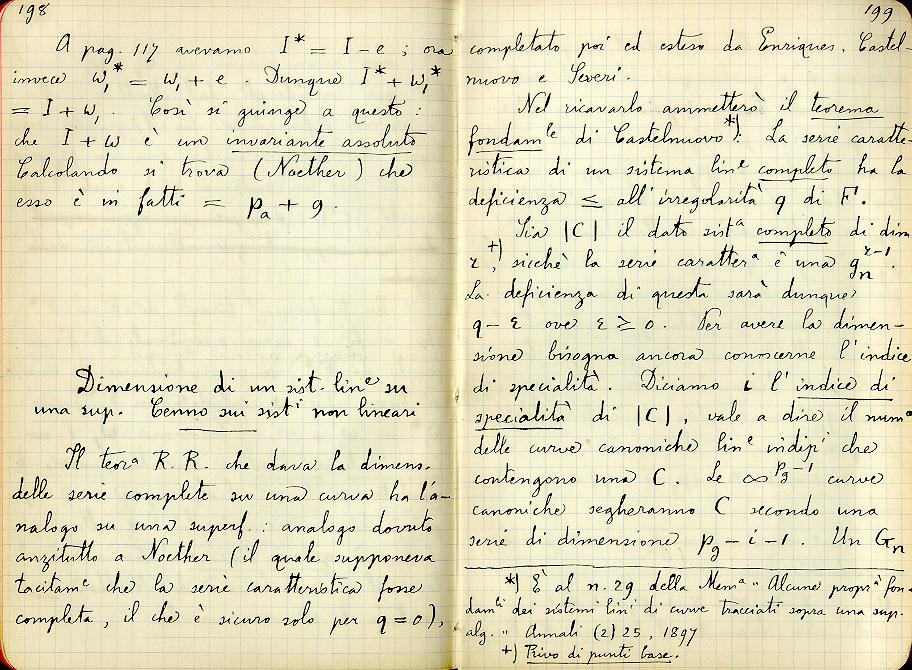 198
A pag. 117 avevamo I* = I – e ; ora
invece ω₁* = ω₁ + e . Dunque I* + ω₁*
= I + ω₁ Così si giunge a questo :
che I + ω è un invariante assoluto
Calcolando si trova (Noether) che
esso è in fatti = pₐ + 9 .
Dimensione di un sist. linᵉ su
una sup. Cenno sui sistⁱ non lineari
Il teorᵃ R. R. che dava la dimens.
delle serie complete su una curva ha l'a-
nalogo su una superf. : analogo dovuto
anzitutto a Noether (il quale supponeva
tacitamᵉ che la serie caratteristica fosse
completa, il che è sicuro solo per q = 0),
199
completato poi ed esteso da Enriques, Castel-
nuovo e Severi.
Nel ricavarlo ammetterò il teorema
fondamˡᵉ di Castelnuovo*) : La serie caratte-
ristica di un sistema linᵉ completo ha la
deficienza ≤ all'irregolarità q di F.
Sia |C| il dato sistᵃ completo di dim
r ,+) sicchè la serie caratterᵃ è una gₙʳ⁻¹.
La deficienza di questa sarà dunque
q – ε ove ε ≥ 0. Per avere la dimen-
sione bisogna ancora conoscerne l'indice
di specialità. Diciamo i l'indice di
specialità di |C|, vale a dire il numº
delle curve canoniche linᵉ indipⁱ che
contengono una C. Le ∞ᵖᵍ⁻¹ curve
canoniche segheranno C secondo una
serie di dimensione p_g – i – 1. Un Gₙ
*) È al n. 29 della Memᵃ „ Alcune proprᵃ fon-
damˡⁱ dei sistemi linⁱ di curve tracciati sopra una sup.
alg. „ Annali (2) 25, 1897
+) Privo di punti base.